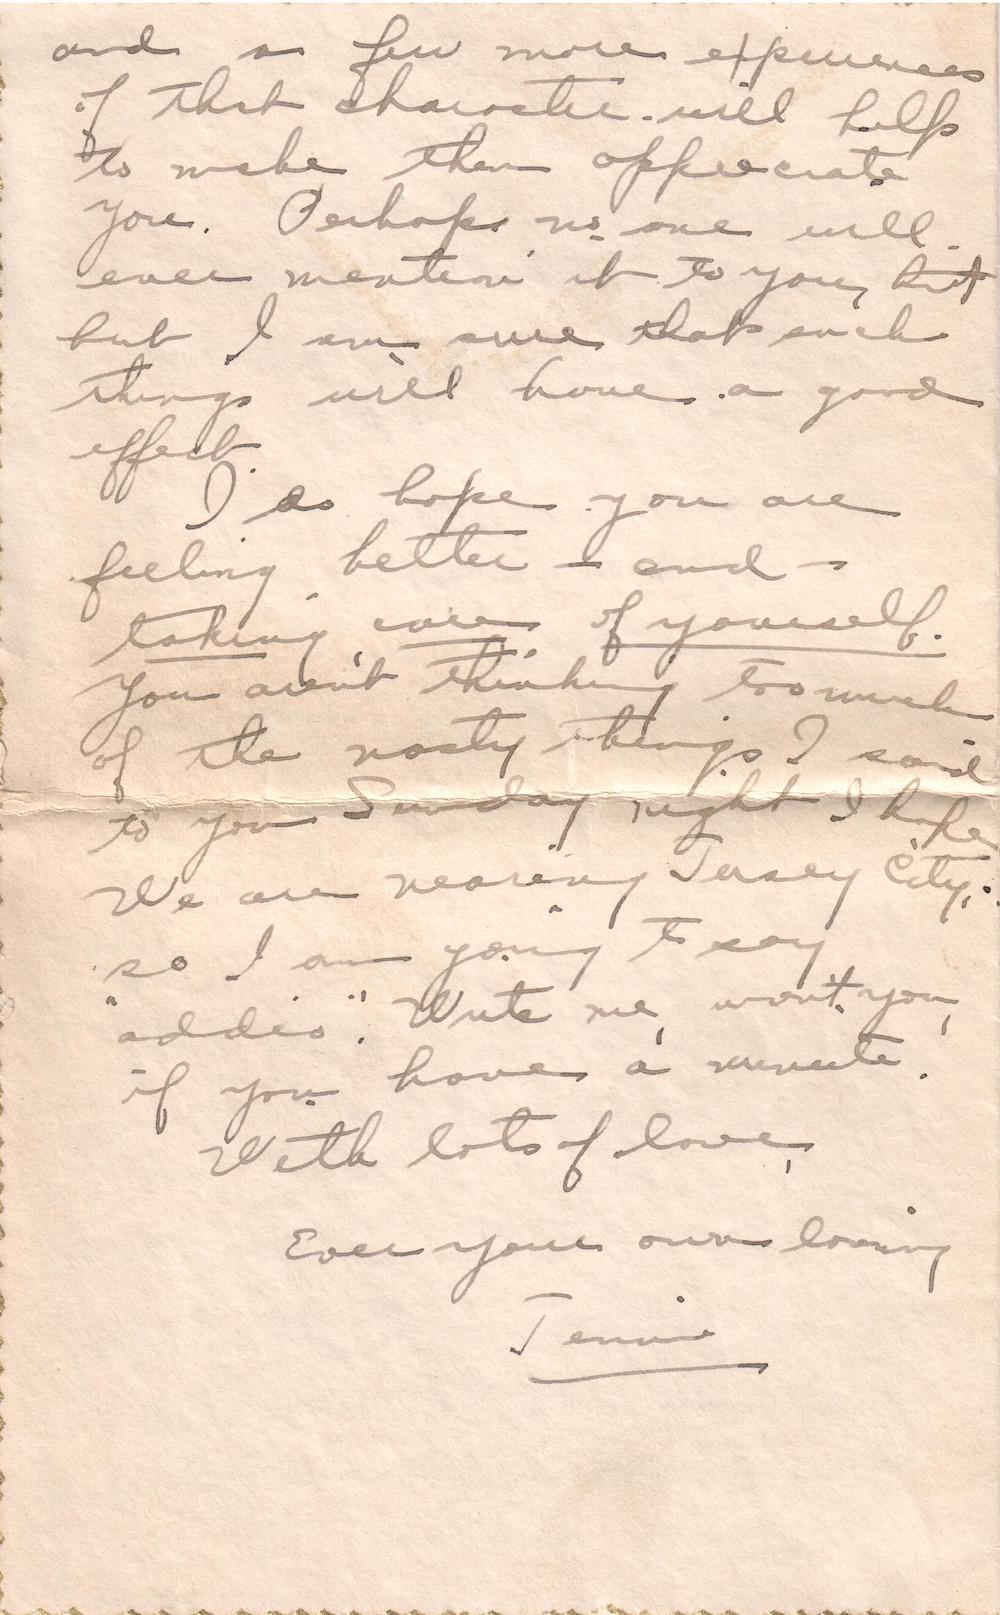 and a few more experiences
of that character will help
to make them appreciate
you. Perhaps no one will
ever mention it to you, but
but I am sure that such
things will have a good
effect.
I do hope you are
feeling better – and –
taking care of yourself.
You aren't thinking too much
of the nasty things I said
to you Sunday night I hope
We are nearing Jersey City,
so I am going to say
"addio". Write me, won't you,
if you have a minute.
With lots of love,
Ever your own loving
Jennie